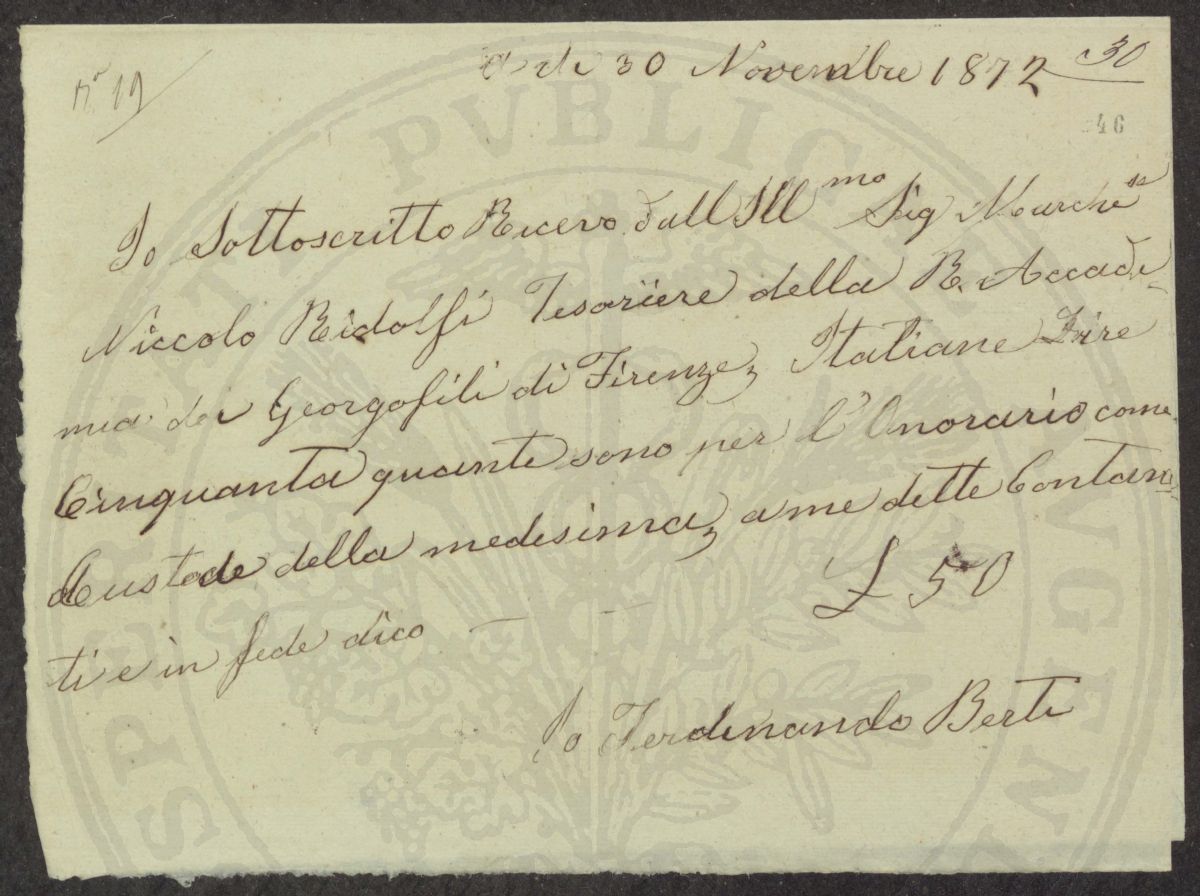 N.o 19
A di 30 Novembre 1872
30
46
Io Sottoscritto Ricevo dall Ill mo Sig Marche se
Niccolo Ridolfi Tesoriere della R. Accade
mia dei Georgofili di Firenze, Italiane Lire
Cinquanta quante sono per l'Onorario come
Custode della medesima, a me dette Contan
ti e in fede dico — — £ 50
Io Ferdinando Berti
PVBLICAE
PROSPERITATI AVGENDAE